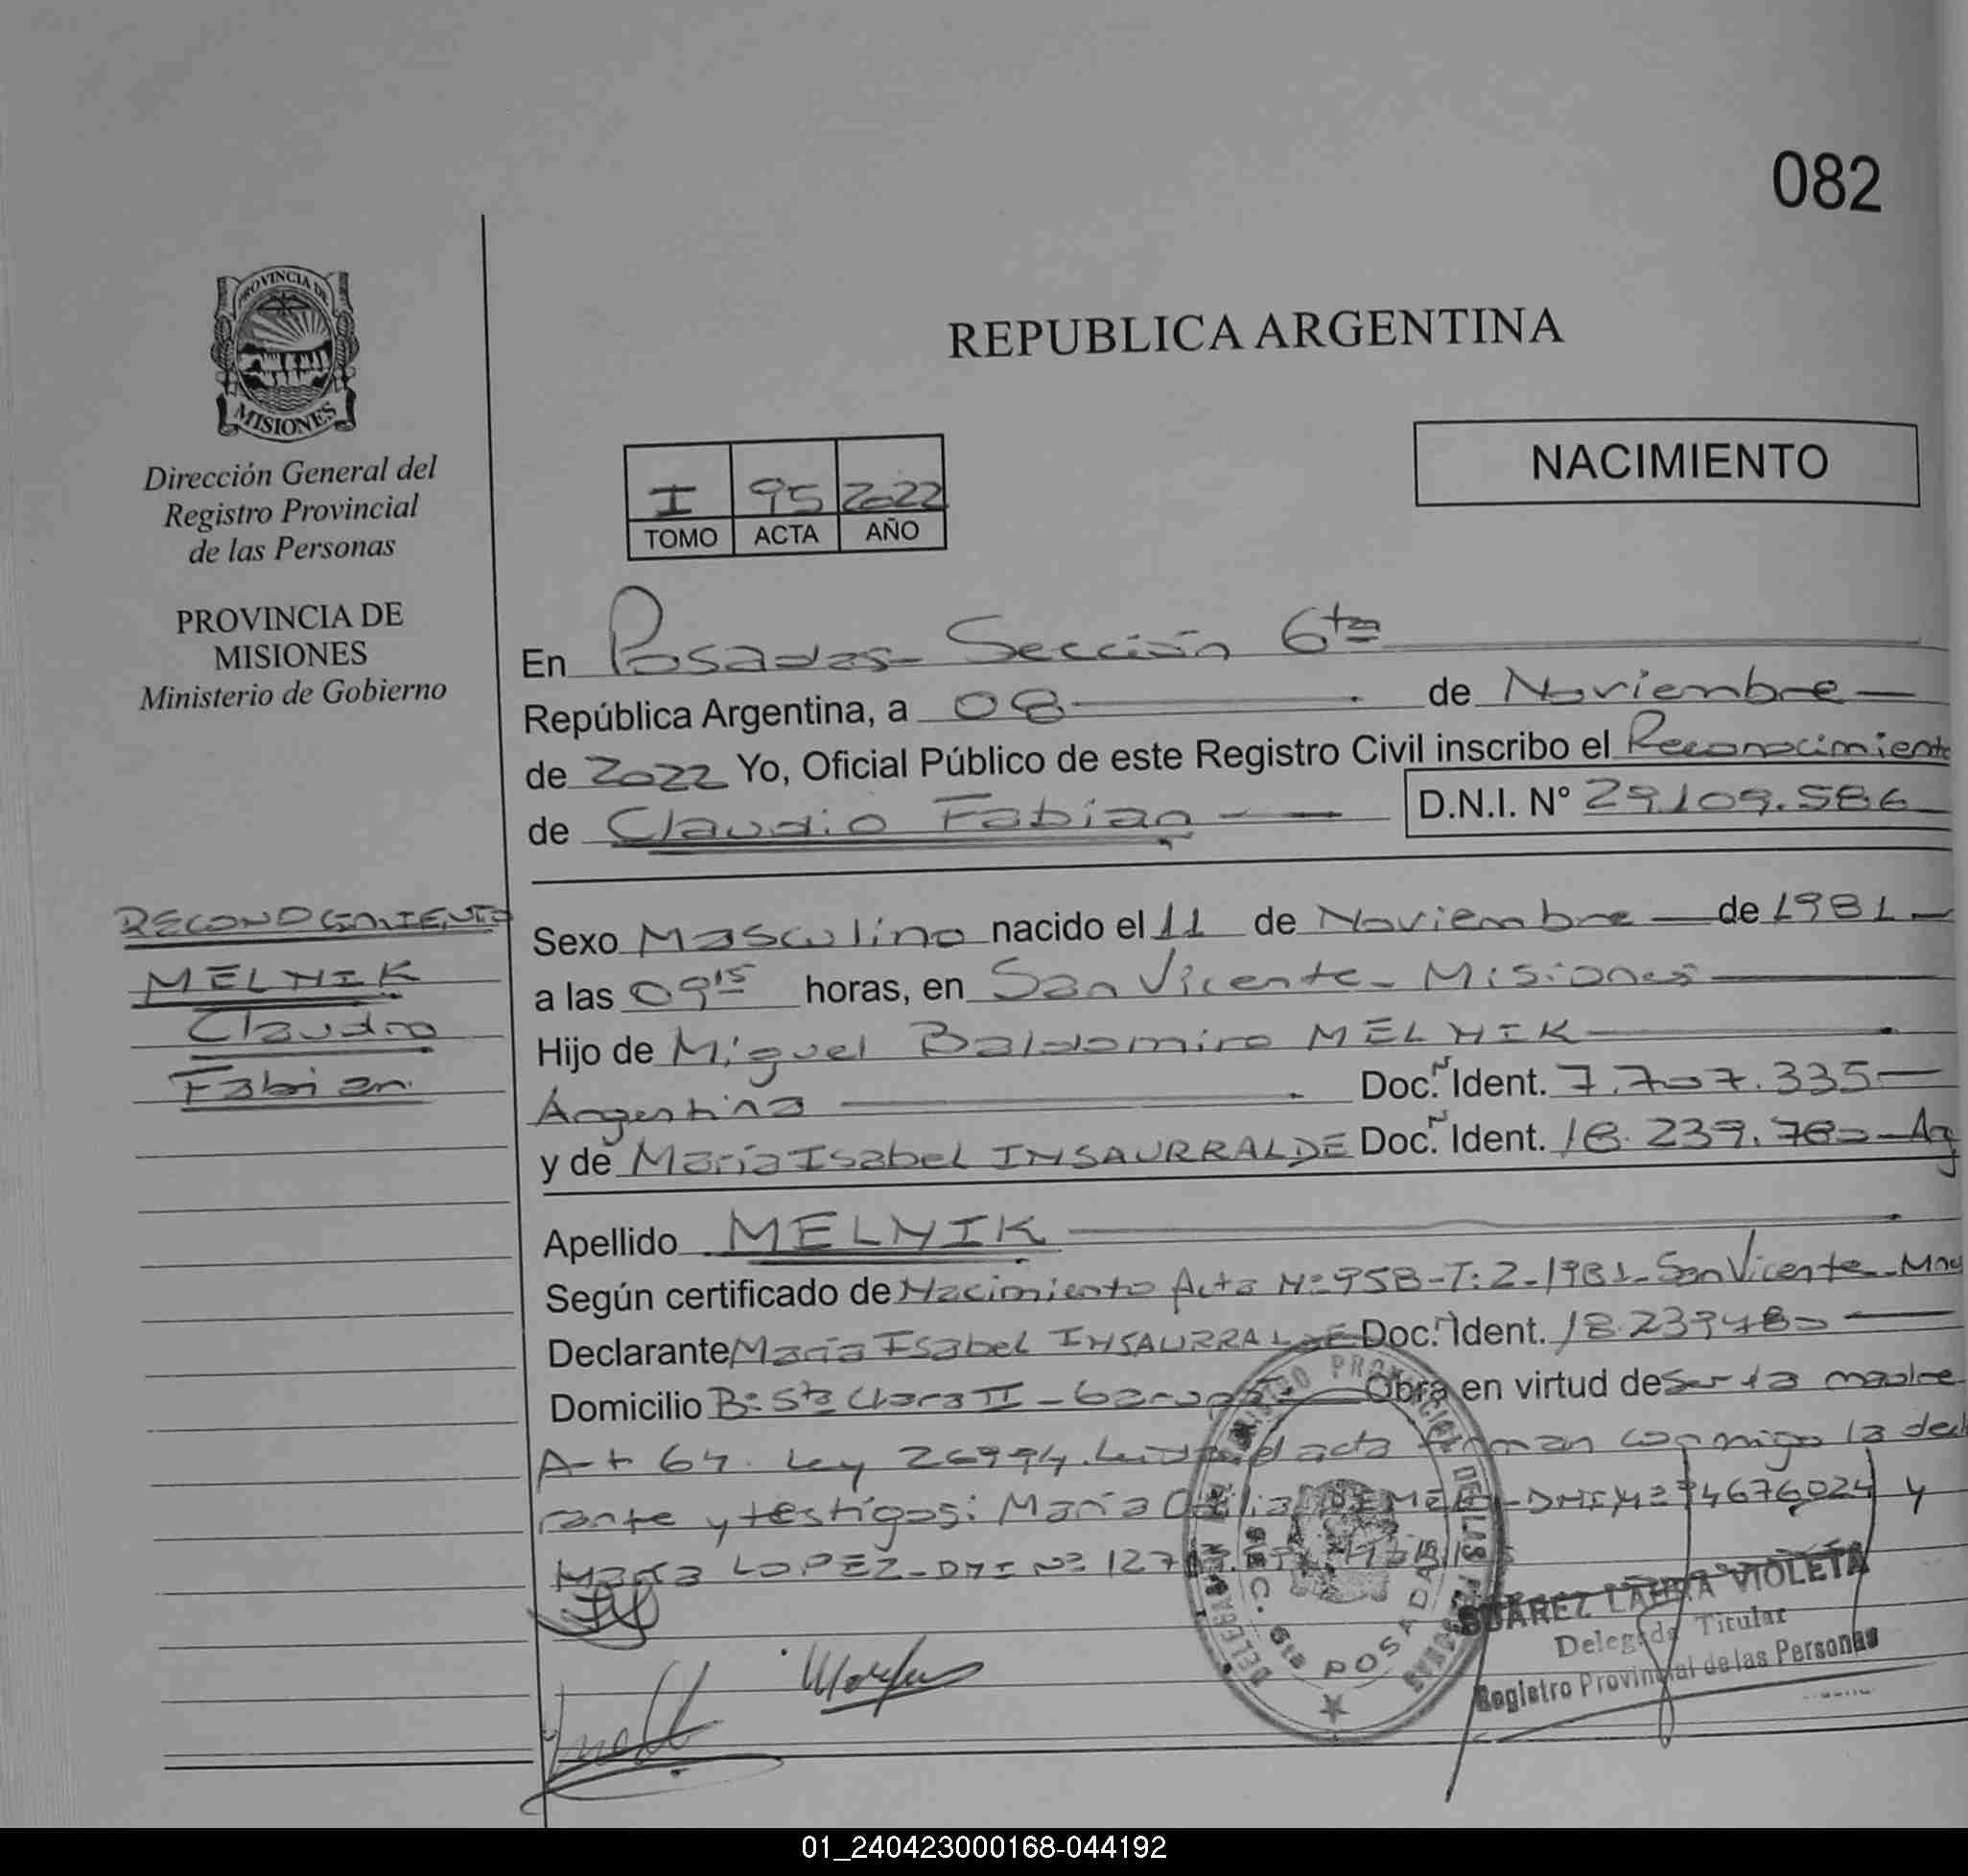 082
PROVINCIA DE
MISIONES
Dirección General del
Registro Provincial
de las Personas
PROVINCIA DE
MISIONES
Ministerio de Gobierno
REPUBLICA ARGENTINA
NACIMIENTO
I 95 2022
TOMO ACTA AÑO
En Posadas - Sección 6ta
República Argentina, a 08 de Noviembre
de 2022 Yo, Oficial Público de este Registro Civil inscribo el Reconocimiento
de Claudio Fabian D.N.I. N° 29.109.586
RECONOCIMIENTO
MELNIK
Claudio
Fabian
Sexo Masculino nacido el 11 de Noviembre de 1981
a las 09 15 horas, en San Vicente - Misiones
Hijo de Miguel Baldomiro MELNIK
Argentina Doc. Ident. 7.707.335
y de María Isabel INSAURRALDE Doc. Ident. 18.239.780 - Ag
Apellido MELNIK
Según certificado de Nacimiento Acta Nº 958 - T: 2 - 1981 - San Vicente - Mnes
Declarante María Isabel INSAURRALDE Doc. Ident.
Domicilio Bº Sta Clara II - Garupá - Obra en virtud de ser la madre
Art 64. Ley 26994. Leída el acta firman conmigo la decla
rante y testigos: María DNI Nº 14676024 y
María LOPEZ - DNI Nº
REGISTRO PROVINCIAL DE LAS PERSONAS
DELEGACION
SEC. 6ta
POSADAS
SUAREZ LAURA VIOLETA
Delegada Titular
Registro Provincial de las Personas
01_240423000168-044192